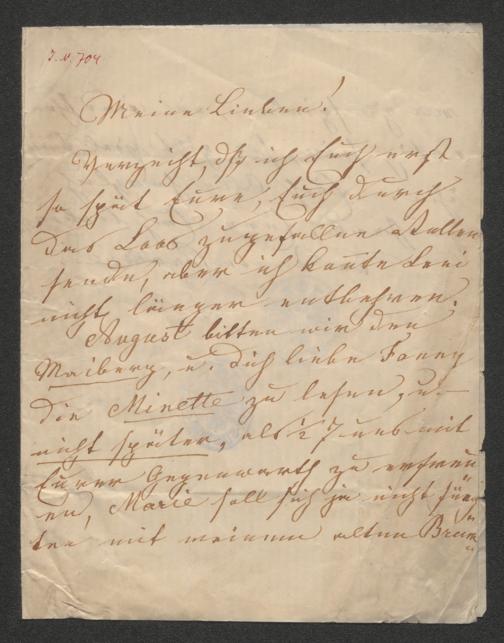 I. N. 704
Meine Lieben!
Verzeiht, dß ich Euch erst
so spät Eure, Euch durch
das Loos zugefallne Rollen
sende, aber ich konnte Leni
nicht länger entbehren.
August bitten wir den
Maiberg, u. dich liebe Fanny
die Minette zu lesen, u.
nicht später, als ½ 7 uns mit
Eurer Gegenwarth zu erfreu
en, Marie soll sich ja nicht fürch
ten mit meinem alten